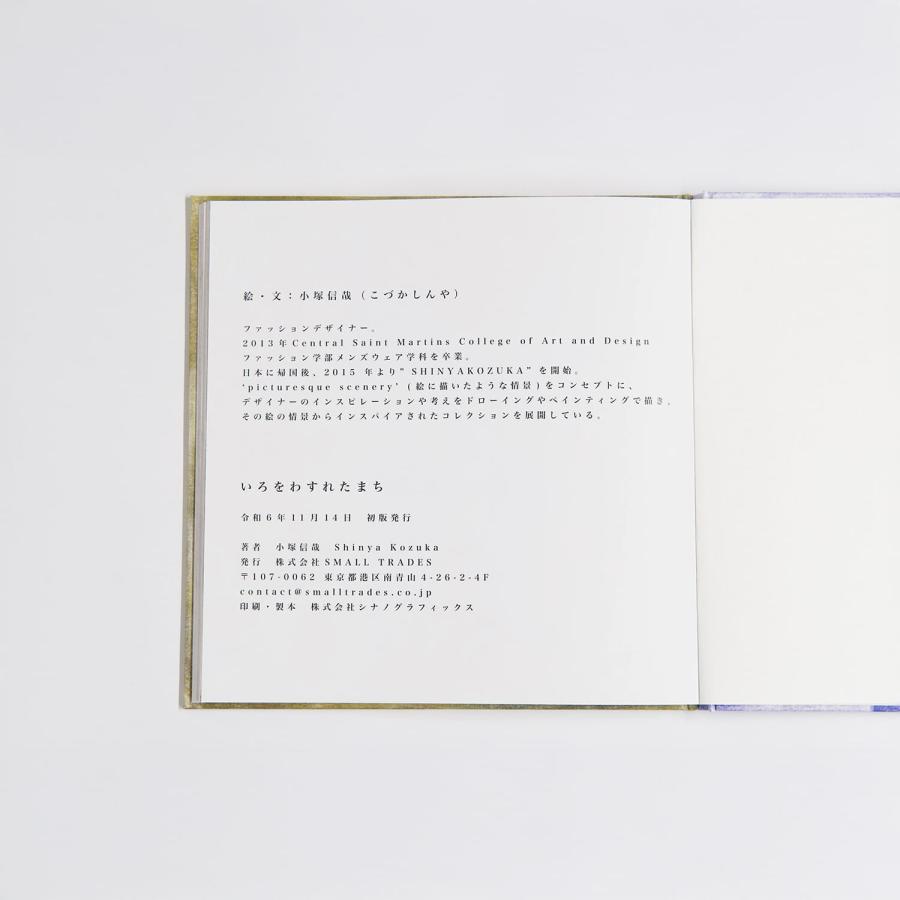 絵・文：小塚信哉（こづかしんや）
ファッションデザイナー。
2013年Central Saint Martins College of Art and Design
ファッション学部メンズウェア学科を卒業。
日本に帰国後、2015 年より" SHINYAKOZUKA" を開始。
'picturesque scenery' (絵に描いたような情景)をコンセプトに、
デザイナーのインスピレーションや考えをドローイングやペインティングで描き、
その絵の情景からインスパイアされたコレクションを展開している。
いろをわすれたまち
令和6年11月14日　初版発行
著者　小塚信哉　Shinya Kozuka
発行　株式会社SMALL TRADES
〒107-0062 東京都港区南青山4-26-2-4F
contact@smalltrades.co.jp
印刷・製本　株式会社シナノグラフィックス